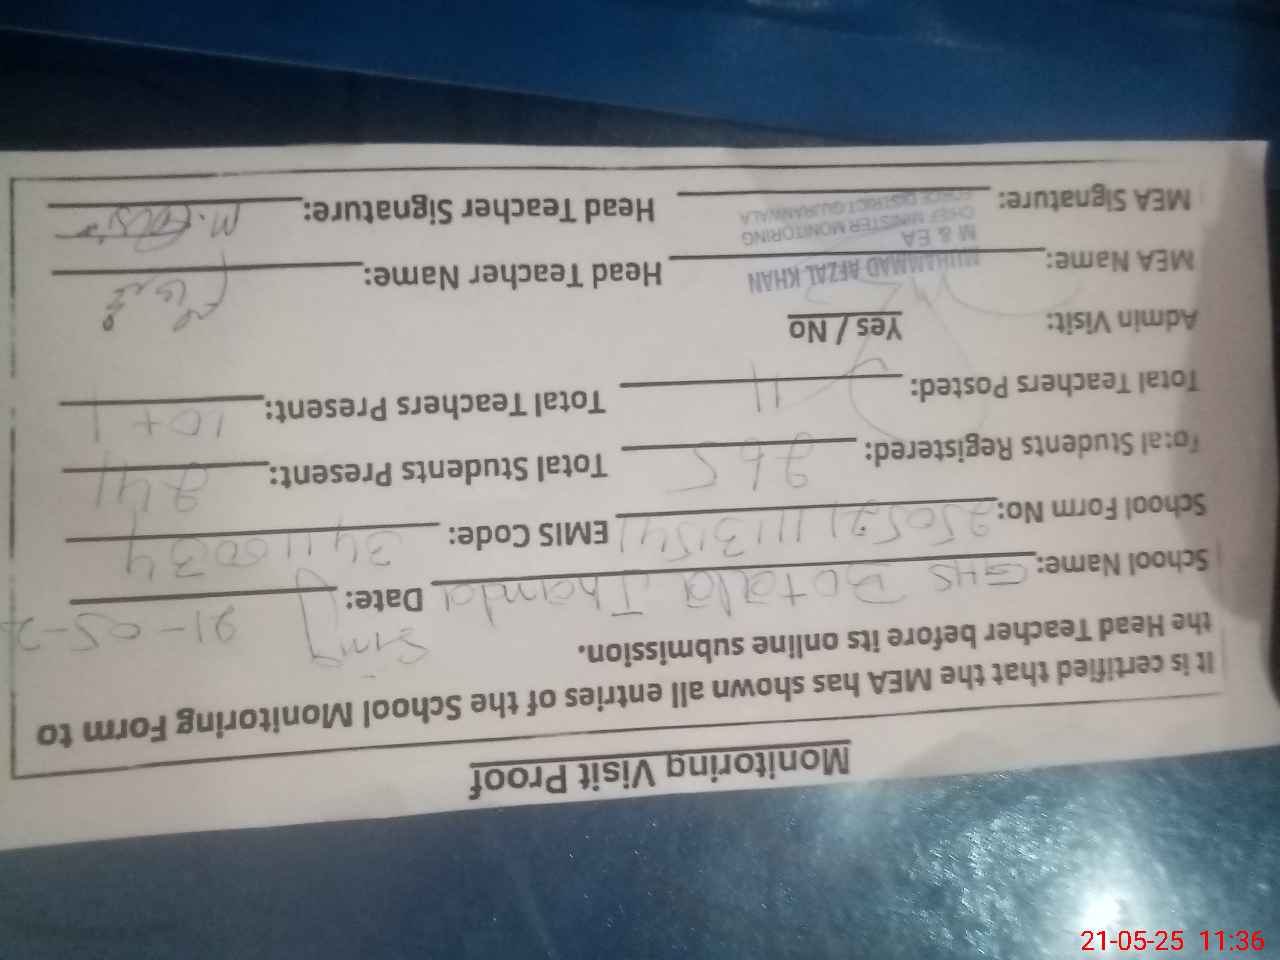 Monitoring Visit Proof
It is certified that the MEA has shown all entries of the School Monitoring Form to
the Head Teacher before its online submission.
School Name: GHS Botala Jhanda Singh Date: 21-05-2
School Form No: 2505211113154 EMIS Code: 34110034
Total Students Registered: 265 Total Students Present: 241
Total Teachers Posted: 11 Total Teachers Present: 10+1
Admin Visit: Yes / No
MEA Name: MUHAMMAD AFZAL KHAN Head Teacher Name:
M & EA
CHIEF MINISTER MONITORING
FORCE DISTRICT GUJRANWALA
MEA Signature: Head Teacher Signature:
21-05-25 11:36